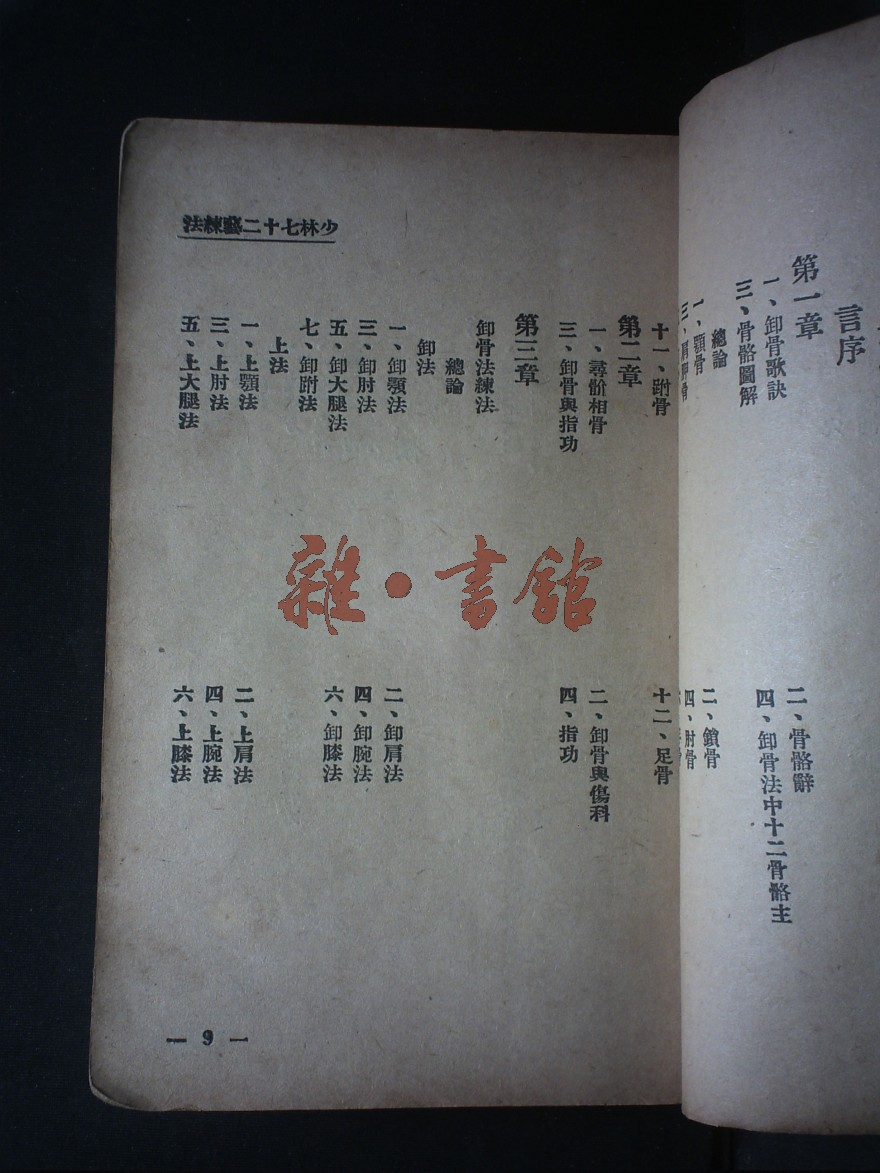 言序
第一章
一、卸骨歌訣
二、骨骼辭
三、骨骼圖解
四、卸骨法中十二骨骼主
總論
一、顎骨
二、鎖骨
四、肘骨
十一、跗骨
十二、足骨
少林七十二藝練法
第二章
一、尋骱相骨
二、卸骨與傷科
三、卸骨與指功
四、指功
第三章
卸骨法練法
總論
卸法
一、卸顎法
二、卸肩法
三、卸肘法
四、卸腕法
五、卸大腿法
六、卸膝法
七、卸跗法
上法
一、上顎法
二、上肩法
三、上肘法
四、上腕法
五、上大腿法
六、上膝法
— 9 —
雜·書館